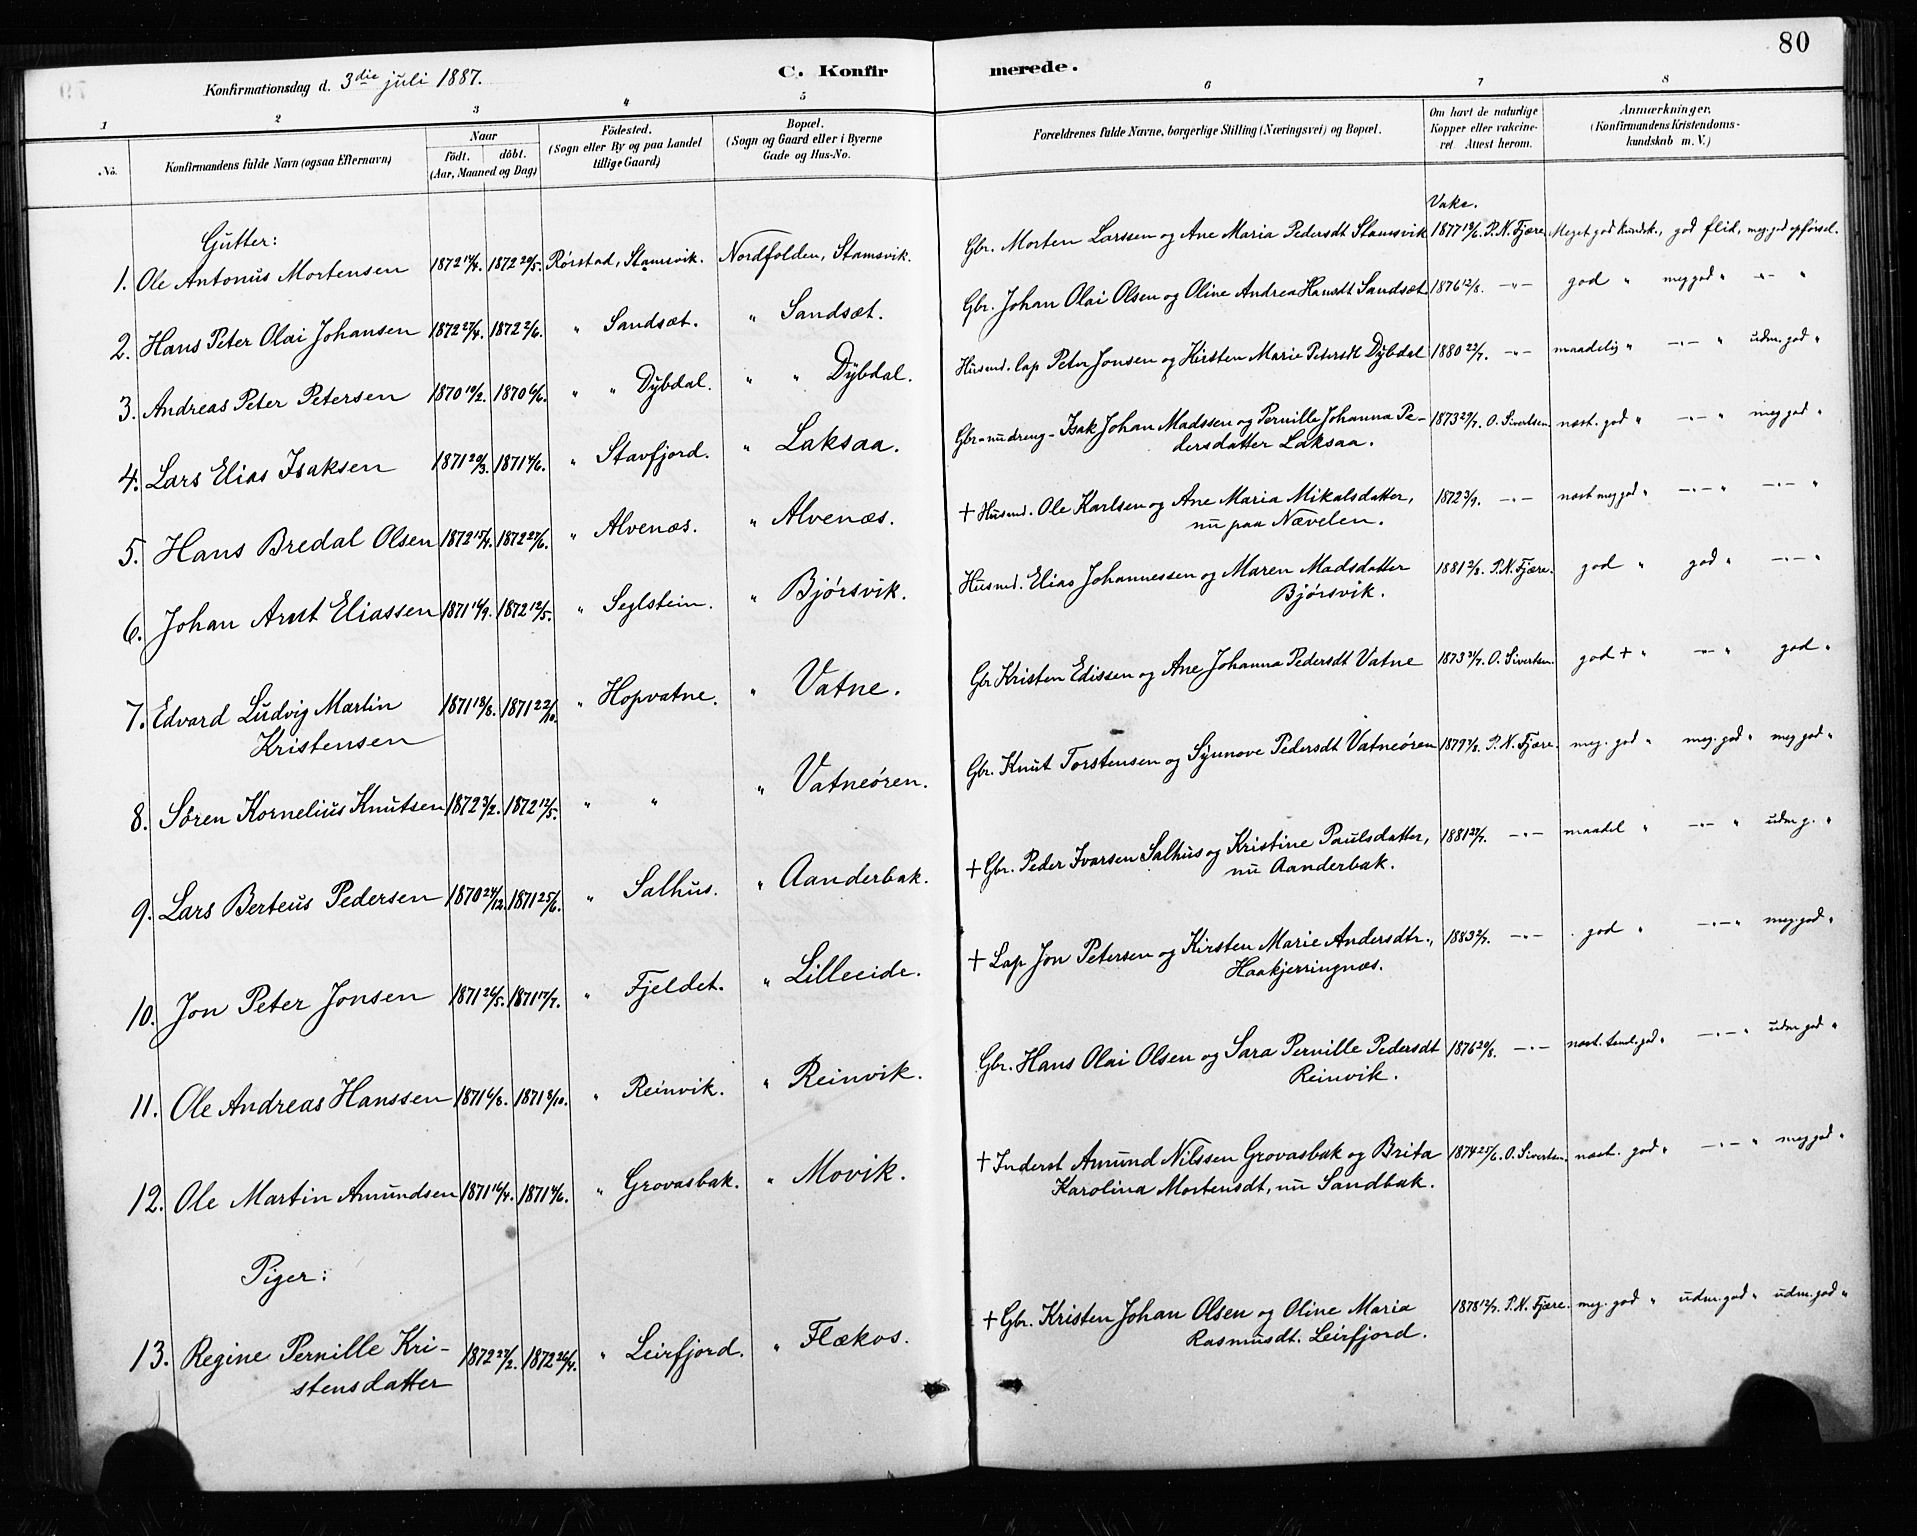 80
Konfirmationsdag d. 3die juli 1887.
C. Konfirmerede.
1 2 3 4 5 6 7 8
No. Konfirmandens fulde Navn (ogsaa Efternavn) Naar født. døbt. (Aar, Maaned og Dag) Fødested. (Sogn eller By og paa Landet tillige Gaard) Bopæl. (Sogn og Gaard eller i Byerne Gade og Hus-No. Forældrenes fulde Navne, borgerlige Stilling (Næringsvei) og Bopæl. Om havt de naturlige Kopper eller vakcineret. Attest herom. Anmærkninger. (Konfirmandens Kristendomskundskab m. V.)
Vakc.
Gutter:
1. Ole Antonus Mortensen 1872 14/4. 1872 20/5. Rørstad, Stamsvik. Nordfolden, Stamsvik. Gbr. Morten Larssen og Ane Maria Pedersdt Stamsvik 1877 19/6. P. N. Fjære Meget god kundsk., god flid, meg. god opførsel.
2. Hans Peter Olai Johansen 1872 27/4. 1872 2/6. " Sandsæt. " Sandsæt. Gbr. Johan Olai Olsen og Oline Andrea Hansdt Sandsæt 1876 12/8. -"- god " meg god " -"- "
3. Andreas Peter Petersen 1870 19/2. 1870 6/6. " " Dybdal. " " Dybdal. Husmd. lap Peter Jonsen og Kirsten Marie Petersdt Dybdal 1880 22/7. -"- maadelig " -"- " udm. god "
4. Lars Elias Isaksen 1871 20/3. 1871 4/6. " Stavfjord. " Laksaa. Gbr. - nu dreng - Isak Johan Madssen og Pernille Johanna Pe-
dersdatter Laksaa. 1873 29/7. O. Sivertsen næst. god " -"- " meg god "
5. Hans Bredal Olsen 1872 15/4. 1872 27/6. " Alvenæs. " Alvenæs. + Husmd. Ole Karlsen og Ane Maria Mikalsdatter,
nu paa Nævelen. 1872 3/9. -"- næst meg god " -"- " -"- "
6. Johan Arnt Eliassen 1871 16/9. 1872 12/5. " Seglstein. " Bjørsvik. Husmd. Elias Johannessen og Maren Madsdatter
Bjørsvik. 1881 2/8. P. N. Fjære. god " god " -"- "
7. Edvard Ludvig Martin
Kristensen 1871 18/8. 1871 22/10. " Hopvatne. " Vatne. Gbr Kristen Edissen og Ane Johanna Pedersdt Vatne 1873 31/7. O. Sivertsen. god + " -"- " god "
8. Søren Kornelius Knutsen 1872 3/2. 1872 12/5. " " " Vatneøren. Gbr. Knut Torstensen og Synnove Pedersdt Vatneøren 1879 7/8. P. N. Fjære. meg. god " meg. god " meg god "
9. Lars Berteus Pedersen 1870 24/12. 1871 25/6. " Salhus. " Aanderbak. + Gbr. Peder Ivarsen Salhus og Kristine Paulsdatter,
nu Aanderbak. 1881 27/7. -"- maadel " -"- " udm g. "
10. Jon Peter Jonsen 1871 26/5. 1871 17/7. " Fjeldet. " Lilleeide. + Lap Jon Petersen og Kirsten Marie Andersdtr.,
Haakjerringnæs. 1883 2/7. -"- god " -"- " meg. god "
11. Ole Andreas Hanssen 1871 6/8. 1871 8/10. " Reinvik. " Reinvik. Gbr. Hans Olai Olsen og Sara Pernille Pedersdt
Reinvik. 1876 20/8. -"- næst. teml. god " -"- " udm god "
12. Ole Martin Amundsen 1871 16/4. 1871 4/6. " Grovasbak. " Movik. + Inderst Amund Nilssen Grovasbak og Brita
Karolina Mortensdt, nu Sandbak. 1874 25/6. O. Sivertsen. næst. god " -"- " meg god "
Piger:
13. Regine Pernille Kri-
stensdatter 1872 27/2. 1872 26/4. " Leirfjord. " Flækos. + Gbr. Kristen Johan Olsen og Oline Maria
Rasmusdt. Leirfjord. 1878 12/7. P. N. Fjære. meg. god " udm. god " udm. god "